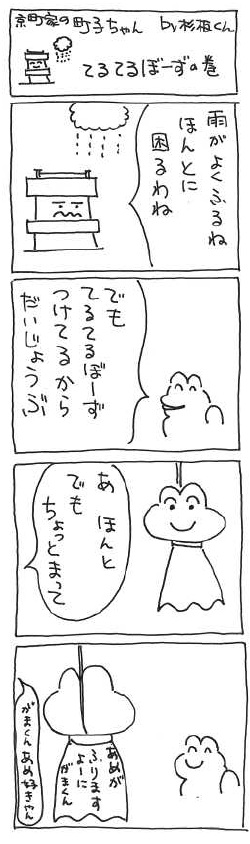 京町家の町子ちゃん by杉板くん
てるてるぼーずの巻
雨がよくふるね
ほんとに
困るわね
でも
てるてるぼーず
つけてるから
だいじょうぶ
あ ほんと
でも
ちょっとまって
あめが
ふります
よーに
がまくん
がまくんあめ好きやん